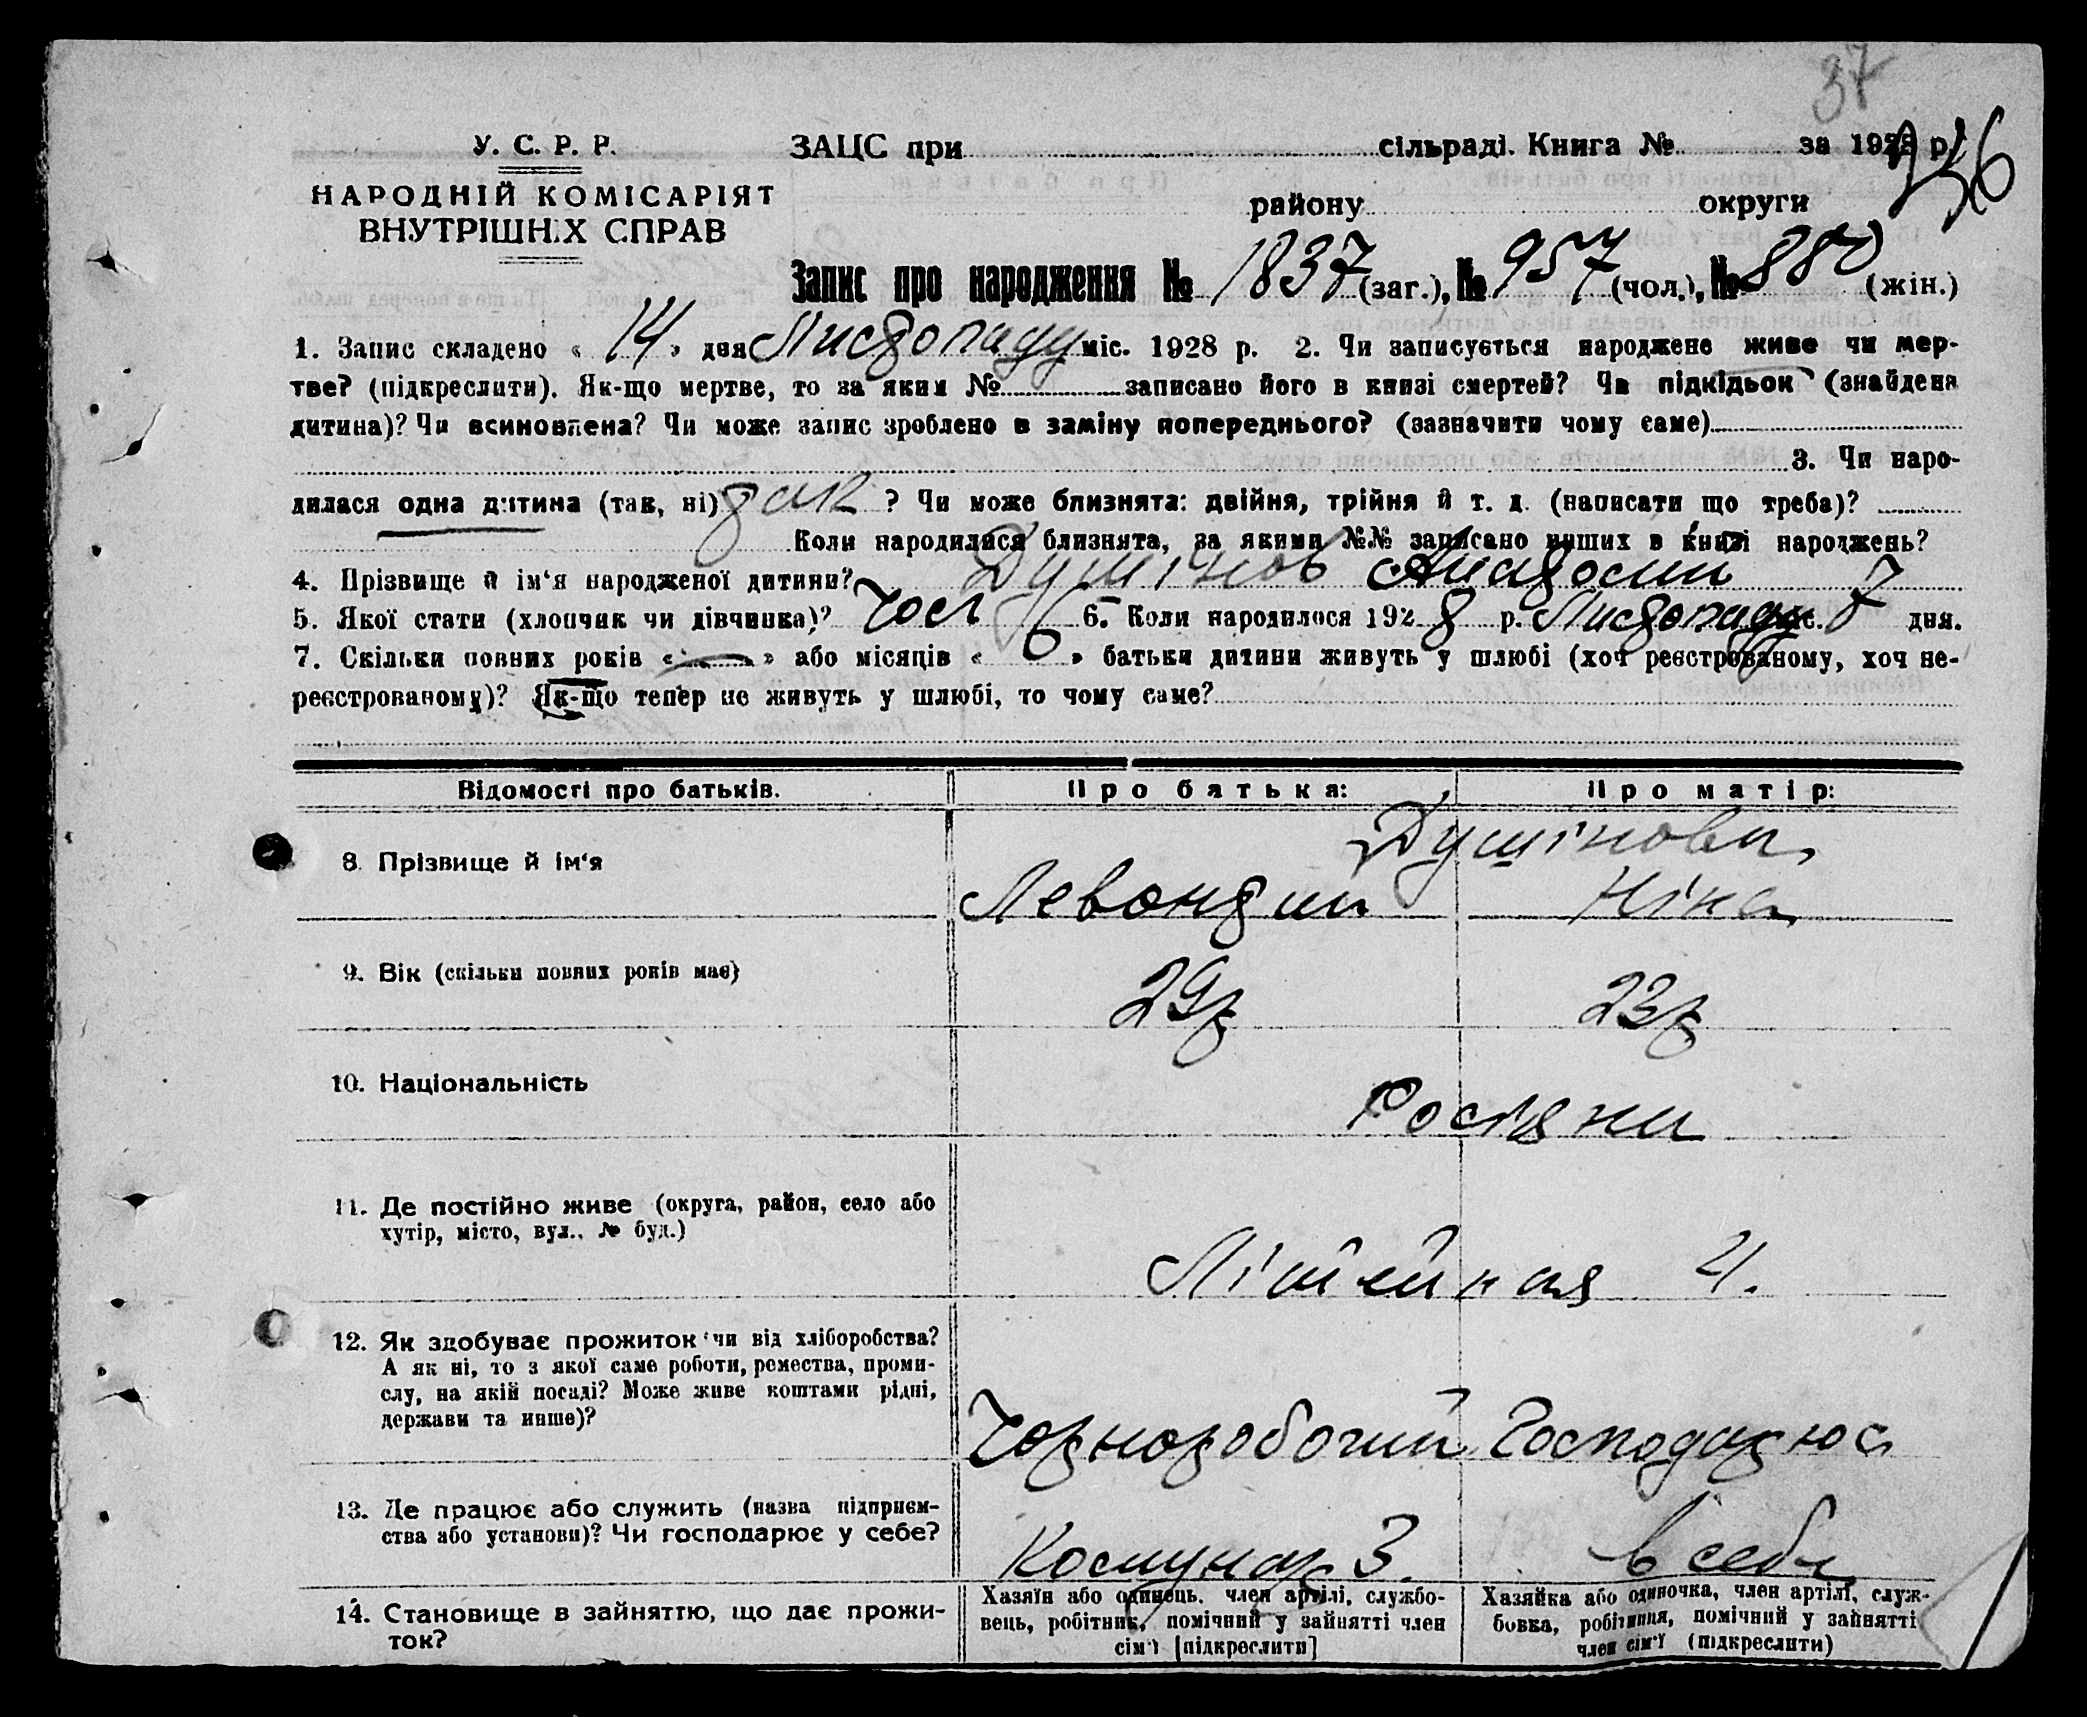 37
У. С. Р. Р.
ЗАЦС при сільраді. Книга № за 1928 р.
НАРОДНІЙ КОМІСАРІЯТ
ВНУТРІШНІХ СПРАВ
району округи
Запис про народження № 1837 (заг.), № 957 (чол.), № 880 (жін.)
1. Запис складено « 14 » дня Листопаду міс. 1928 р. 2. Чи записується народжене живе чи мер-
тве? (підкреслити). Як-що мертве, то за яким № записано його в книзі смертей? Чи підкідьок (знайдена
дитина)? Чи всиновлена? Чи може запис зроблено в заміну попереднього? (зазначити чому саме)
3. Чи наро-
дилася одна дитина (так, ні) так ? Чи може близнята: двійня, трійня й т. д. (написати що треба)?
Коли народилися близнята, за якими №№ записано инших в книзі народжень?
4. Прізвище й ім‘я народженої дитини? Душінов Анатолій
5. Якої стати (хлопчик чи дівчинка)? Чол 6. Коли народилося 1928 р. Листопаду міс. 7 дня.
7. Скільки повних років « — » або місяців « 6 » батьки дитини живуть у шлюбі (хоч реєстрованому, хоч не-
реєстрованому)? Як-що тепер не живуть у шлюбі, то чому саме?
Відомості про батьків. Про батька: Про матір:
Душінови
8. Прізвище й ім‘я Левонтий Ніна
9. Вік (скільки повних років має) 29р 23р
10. Національність Росіяни
11. Де постійно живе (округа, район, село або
хутір, місто, вул., № буд.)
Літейная 4.
12. Як здобуває прожиток чи від хліборобства?
А як ні, то з якої саме роботи, ремества, проми-
слу, на якій посаді? Може живе коштами рідні,
держави та инше)?
Чорноробочий Господарює
13. Де працює або служить (назва підприєм-
ства або установи)? Чи господарює у себе?
Комунар З. в себе
14. Становище в зайняттю, що дає прожи-
ток?
Хазяїн або одинець, член артілі, службо-
вець, робітник, помічний у зайнятті член
сім‘ї [підкреслити]
Хазяйка або одиночка, член артілі, служ-
бовка, робітниця, помічний у зайнятті
член сім‘ї (підкреслити)